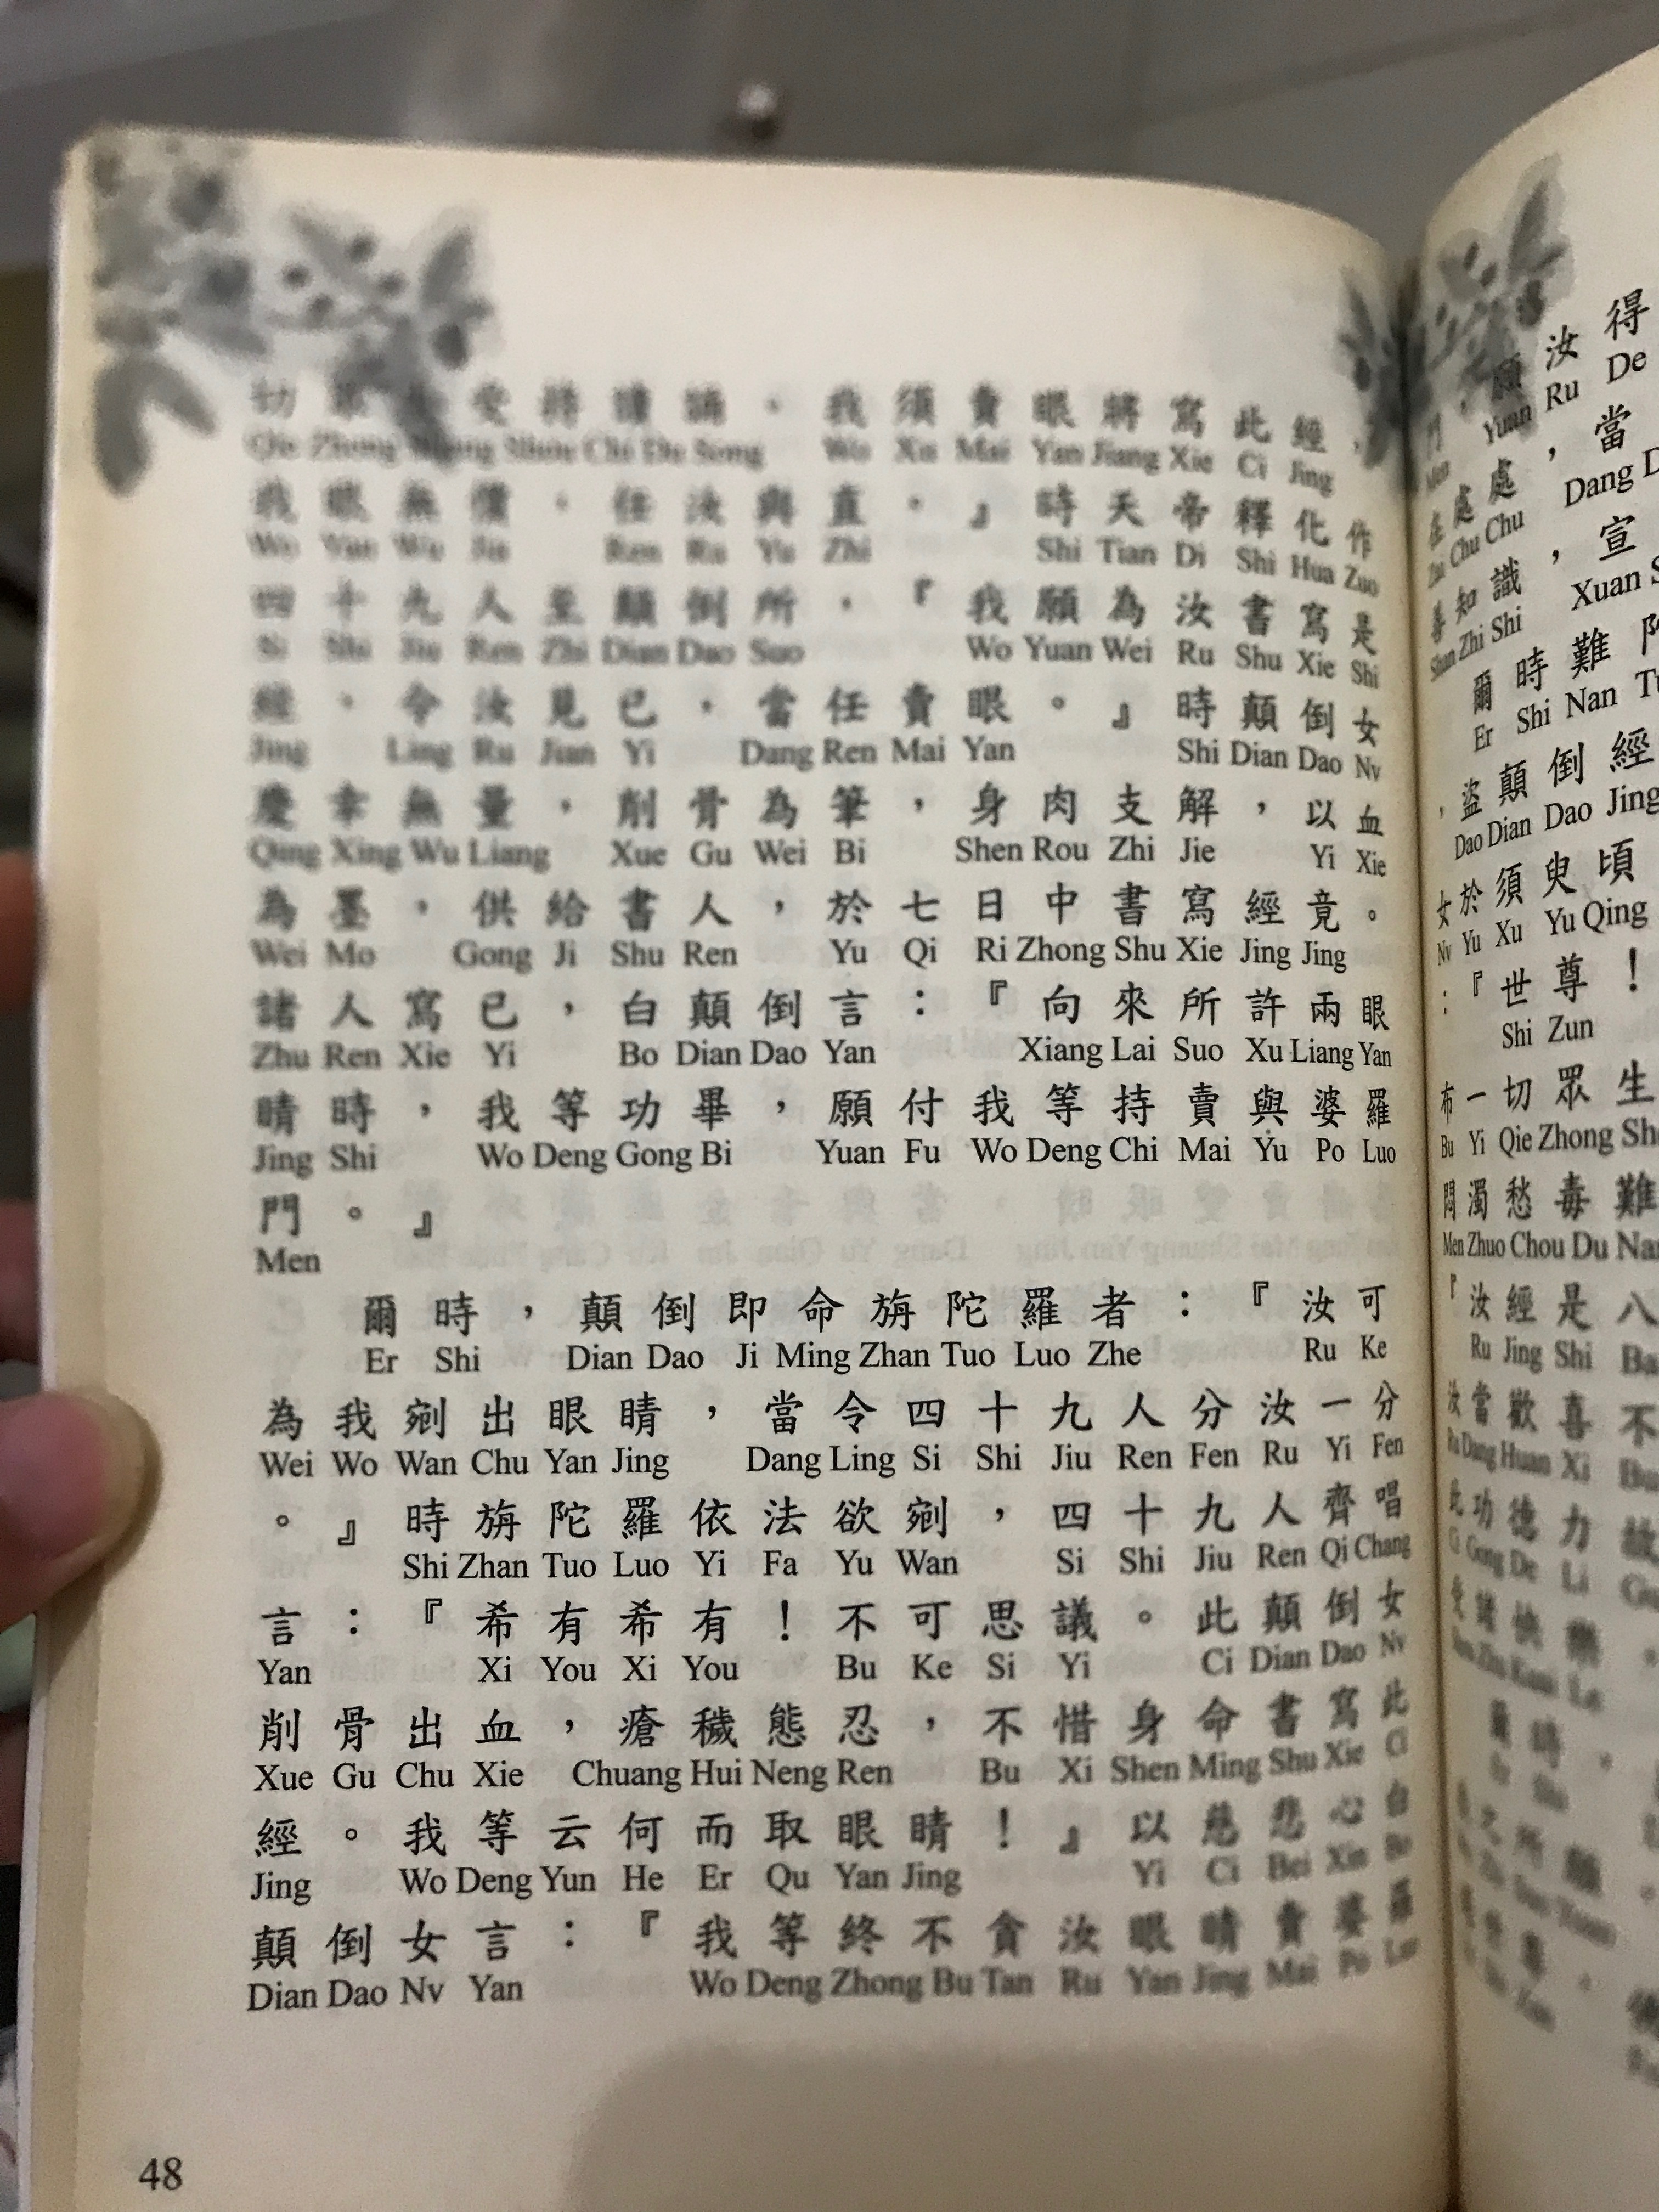 切眾生受持讀誦。我須賣眼將寫此經，
Qie Zhong Sheng Shou Chi Du Song Wo Xu Mai Yan Jiang Xie Ci Jing
我眼無價，任汝與直。』時天帝釋化作
Wo Yan Wu Jia Ren Ru Yu Zhi Shi Tian Di Shi Hua Zuo
四十九人至顛倒所，『我願為汝書寫是
Si Shi Jiu Ren Zhi Dian Dao Suo Wo Yuan Wei Ru Shu Xie Shi
經，令汝見已，當任賣眼。』時顛倒女
Jing Ling Ru Jian Yi Dang Ren Mai Yan Shi Dian Dao Nv
慶幸無量，削骨為筆，身肉支解，以血
Qing Xing Wu Liang Xue Gu Wei Bi Shen Rou Zhi Jie Yi Xie
為墨，供給書人，於七日中書寫經竟。
Wei Mo Gong Ji Shu Ren Yu Qi Ri Zhong Shu Xie Jing Jing
諸人寫已，白顛倒言：『向來所許兩眼
Zhu Ren Xie Yi Bo Dian Dao Yan Xiang Lai Suo Xu Liang Yan
睛時，我等功畢，願付我等持賣與婆羅
Jing Shi Wo Deng Gong Bi Yuan Fu Wo Deng Chi Mai Yu Po Luo
門。』
Men
爾時，顛倒即命旃陀羅者：『汝可
Er Shi Dian Dao Ji Ming Zhan Tuo Luo Zhe Ru Ke
為我剜出眼睛，當令四十九人分汝一分
Wei Wo Wan Chu Yan Jing Dang Ling Si Shi Jiu Ren Fen Ru Yi Fen
。』時旃陀羅依法欲剜，四十九人齊唱
Shi Zhan Tuo Luo Yi Fa Yu Wan Si Shi Jiu Ren Qi Chang
言：『希有希有！不可思議。此顛倒女
Yan Xi You Xi You Bu Ke Si Yi Ci Dian Dao Nv
削骨出血，瘡穢態忍，不惜身命書寫此
Xue Gu Chu Xie Chuang Hui Neng Ren Bu Xi Shen Ming Shu Xie Ci
經。我等云何而取眼睛！』以慈悲心白
Jing Wo Deng Yun He Er Qu Yan Jing Yi Ci Bei Xin Bo
顛倒女言：『我等終不貪汝眼睛賣婆羅
Dian Dao Nv Yan Wo Deng Zhong Bu Tan Ru Yan Jing Mai Po Luo
48
門，願汝得
Men Yuan Ru De
在處處，當
Zai Chu Chu Dang
善知識，宣
Shan Zhi Shi Xuan
爾時難
Er Shi Nan
，盜顛倒經
Dao Dian Dao Jing
女於須臾頃
Nv Yu Xu Yu Qing
：『世尊！
Shi Zun
布一切眾生
Bu Yi Qie Zhong
悶濁愁毒難
Men Zhuo Chou Du
『汝經是八
Ru Jing Shi Ba
汝當歡喜不
Ru Dang Huan Xi Bu
此功德力故
Ci Gong De Li Gu
受諸快樂，